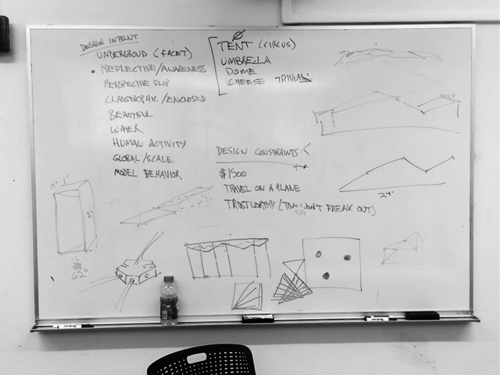 DESIGN INTENT
UNDERGROUD (FACET)
• REFLECTIVE/AWARENESS
PERSPECTIVE FLIP
/ENCLOSED
BEAUTIFUL
LAYER
HUMAN ACTIVITY
GLOBAL/SCALE
MODEL BEHAVIOR
TENT (CIRCUS)
UMBRELLA
DOME
CHEESE TRIVIAL
DESIGN CONSTRAINTS
$1500
TRAVEL ON A PLANE
TRUSTWORTHY (TSA WON'T FREAK OUT)
24"